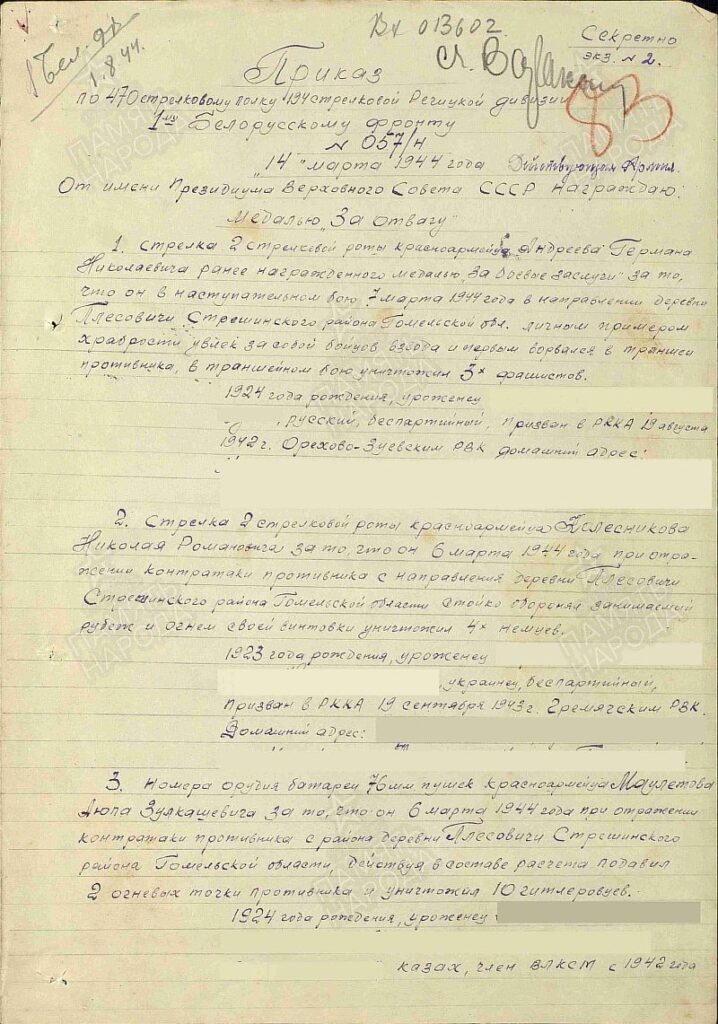 Вх 013602
1 Бел. ф
1.8.44.
Секретно
экз. № 2.
83
Приказ
по 470 стрелковому полку 194 стрелковой Речицкой дивизии
1му Белорусскому фронту
№ 057/н
"14" марта 1944 года Действующая Армия.
От имени Президиума Верховного Совета СССР награждаю:
Медалью „За отвагу"
1. Стрелка 2 стрелковой роты красноармейца Андреева Германа
Николаевича ранее награжденного медалью „За боевые заслуги" за то,
что он в наступательном бою 7 марта 1944 года в направлении деревни
Плесовичи Стрешинского района Гомельской обл. личным примером
храбрости увлек за собой бойцов взвода и первым ворвался в траншеи
противника, в траншейном бою уничтожил 3х фашистов.
1924 года рождения, уроженец
, русский, беспартийный, призван в РККА 19 августа
1942 г. Орехово-Зуевским РВК домашний адрес:
2. Стрелка 2 стрелковой роты красноармейца Колесникова
Николая Романовича за то, что он 6 марта 1944 года при отра-
жении контратаки противника с направления деревни Плесовичи
Стрешинского района Гомельской области стойко оборонял занимаемый
рубеж и огнем своей винтовки уничтожил 4х немцев.
1923 года рождения, уроженец
, украинец, беспартийный,
призван в РККА 19 сентября 1943 г. Гремячским РВК.
Домашний адрес:
3. Номера орудия батареи 76 мм пушек красноармейца Маулетова
Аюпа Зулкашевича за то, что он 6 марта 1944 года при отражении
контратаки противника с района деревни Плесовичи Стрешинского
района Гомельской области, действуя в составе расчета подавил
2 огневых точки противника и уничтожил 10 гитлеровцев.
1924 года рождения, уроженец
казах, член ВЛКСМ с 1942 года
ПАМЯТЬ НАРОДА